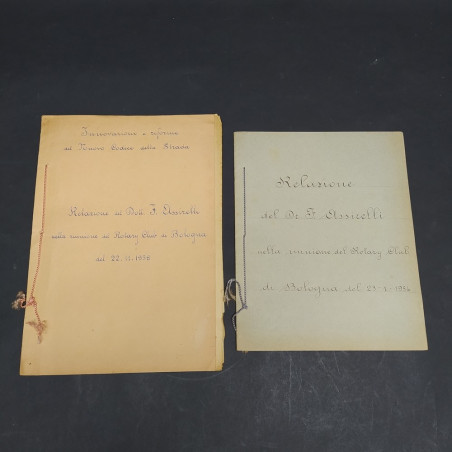 Innovazione e riforme
del Nuovo Codice della Strada
Relazione del Dott. F. Assirelli
nella riunione del Rotary Club di Bologna
del 22-11-1956
Relazione
del Dr F. Assirelli
nella riunione del Rotary Club
di Bologna del